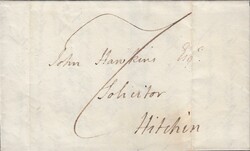 John Hawkins Esqr.
Solicitor
Hitchin
7